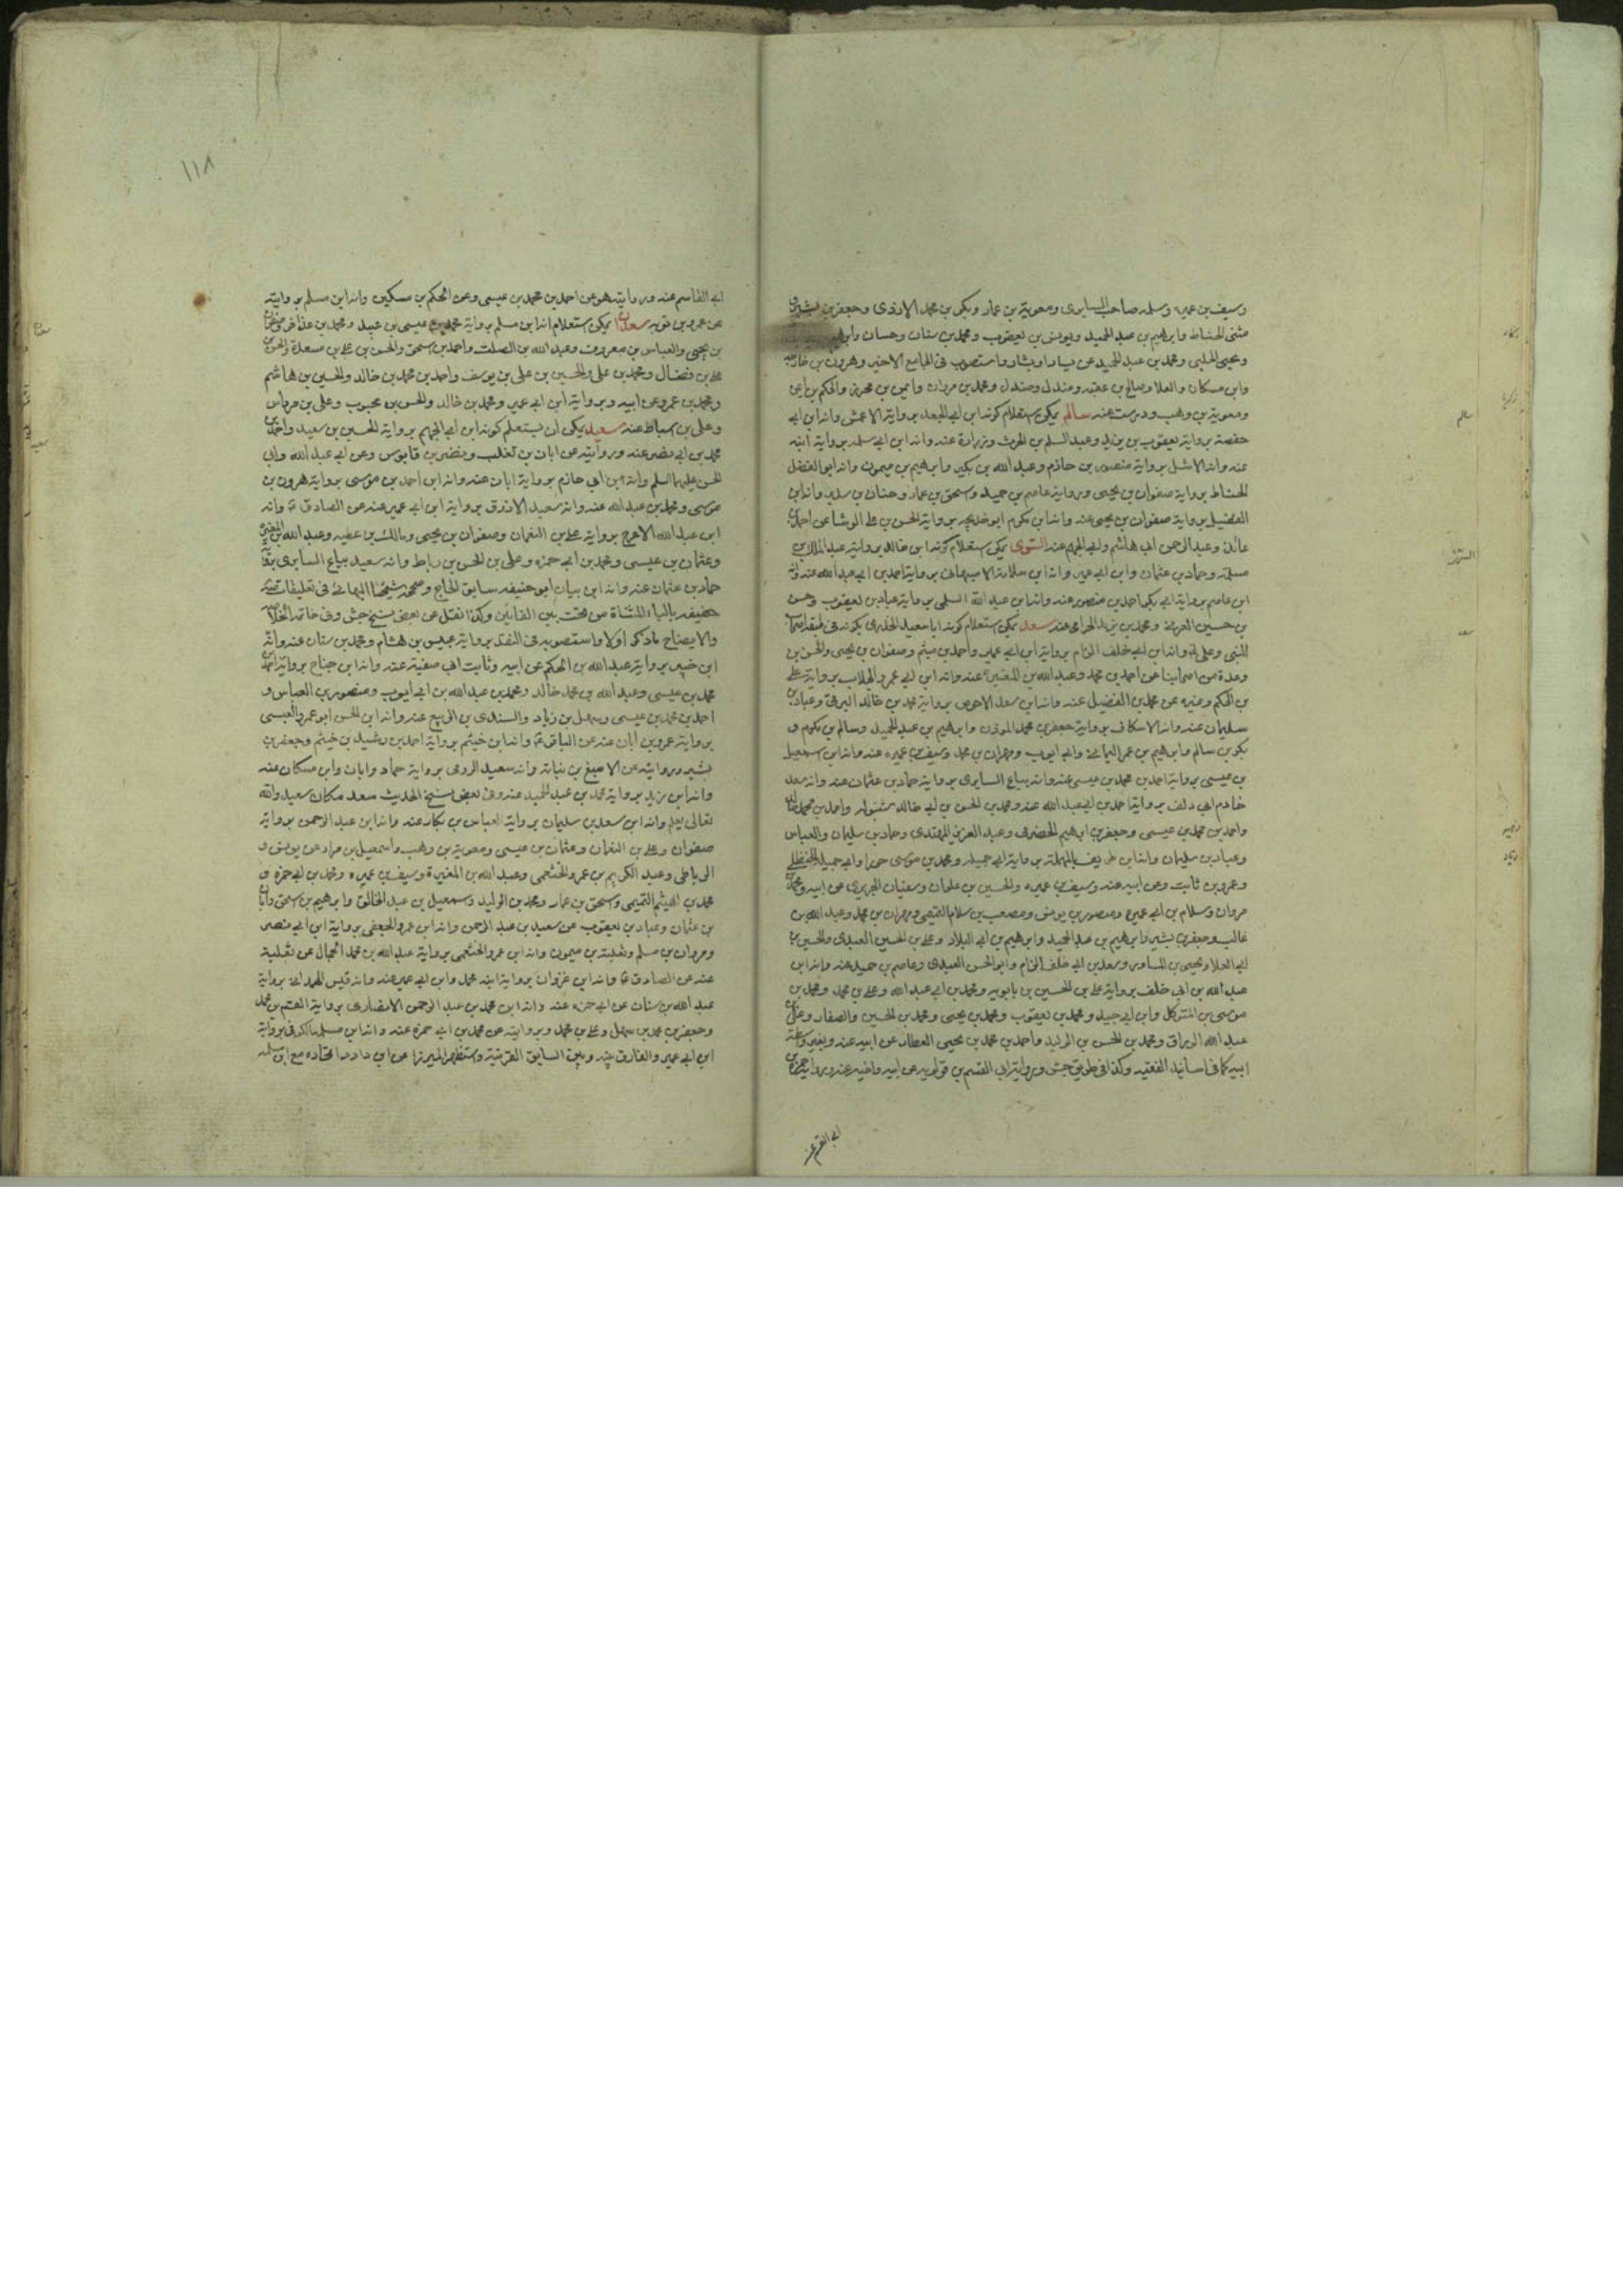 وسيف بن عميره وسلمه صاحب السابرى ومعوية بن عمار وبكر بن محمد الازدى وجعفر بن بشير
مثنى الحناط وابرهيم بن عبد الحميد ويونس بن يعقوب ومحمد بن سنان وحسان
ويحيى الحلبى ومحمد بن عبد الحميد عن سيار او بشار واستصوب فى الجامع الاخير وهرون بن خارجه
وابن مسكان والعلا وصالح بن عقبه ومندل وصندل ومحمد بن مروان وايمن بن محرز والحكم بن ايمن
ومعوية بن وهب ودرست عنه سالم يمكن استعلام كونه ابن ابى الجعد برواية الاعمش وانه ابن ابى
حفصة برواية يعقوب بن يزيد وعبد السلم بن الحرث وزرارة عنه وانه ابن ابى سلمه برواية ابنه
عنه وانه الاشل برواية منصور بن حازم وعبد الله بن بكير وابرهيم بن ميمون وانه ابو الفضل
الحناط برواية صفوان بن يحيى وبرواية عاصم بن حميد واسحق بن عمار وحنان بن سدير وانه ابن
الفضيل برواية صفوان بن يحيى عنه وانه ابن مكرم ابو خديجه برواية الحسن بن على الوشا عن احمد بن
عائذ وعبد الرحمن ابى هاشم وابى الجهم عنه السّرى يمكن استعلام كونه ابن خالد برواية عبد الملك بن
مسلمة وحماد بن عثمان وابن ابى عمير وانه ابن سلامة الاصبهانى برواية احمد بن ابى عبد الله عنه وانه
ابن عاصم برواية ابى بكر احمد بن منصور عنه وانه ابن عبد الله السلمى برواية عباد بن يعقوب وحسن
بن حسين العرنى ومحمد بن يزيد الحرامى عنه سعد يمكن استعلام كونه ابا سعيد الخدرى بكونه فى طبقة اصحاب
النبى وعلى وانه ابن ابى خلف الزام برواية ابن ابى عمير واحمد بن ميثم وصفوان بن يحيى والحسن بن
وعدة من اصحابنا عن احمد بن محمد وعبد الله بن المغيرة عنه وانه ابن ابى عمرو الجلاب برواية على
بن الحكم وغيره عن محمد بن الفضيل عنه وانه ابن سعد الاحوص برواية محمد بن خالد البرقى وعباد بن
سليمان عنه وانه الاسكاف برواية جعفر بن محمد المؤذن وابرهيم بن عبد الحميد وسالم بن مكرم و
بكر بن سالم وابرهيم بن عمر اليمانى وابى ايوب ومهران بن محمد وسيف بن عميره عنه وانه ابن اسمعيل
بن عيسى برواية احمد بن محمد بن عيسى عنه وانه بياع السابرى برواية حماد بن عثمان عنه وانه سعد
خادم ابى دلف برواية احمد بن ابى عبد الله عنه ومحمد بن الحسن بن ابى خالد شنبولة واحمد بن محمد
واحمد بن محمد بن عيسى وجعفر بن ابرهيم الحضرمى وعبد العزيز المهتدى وحماد بن سليمان والعباس
وعباد بن سليمان وانه ابن طريف بالمهملة برواية ابى جميله ومحمد بن موسى حورا وابى جميلة الحنظلى
وعمرو بن ثابت وعن ابيه عنه وسيف بن عميره والحسين بن علوان وسفيان الجريرى عن ابيه ومحمد
مروان وسلام بن ابى عميره ومنصور بن يونس ومصعب بن سلام التميمى ومهران بن محمد وعبد الله بن
غالب وجعفر بن بشير وابرهيم بن عبد الحميد وابرهيم بن ابى البلاد وعلى بن الحسين العبدى والحسين بن
ابى العلا ويحيى بن المساور وسعد بن ابى خلف الزام وابو الحسن العبدى وعاصم بن حميد عنه وانه ابن
عبد الله بن ابى خلف برواية على بن الحسين بن بابويه ومحمد بن ابى عبد الله وعلى بن محمد ومحمد بن
موسى بن المتوكل وابن ابى جيد ومحمد بن يعقوب ومحمد بن يحيى ومحمد بن الحسين والصفار وعلى بن
عبد الله الوراق ومحمد بن الحسن بن الوليد واحمد بن محمد بن يحيى العطار عن ابيه عنه وبغير واسطة
ابيه كما فى اسانيد الفقيه وكذا فى طريق جش وبرواية ابى القسم بن قولويه عن ابيه واخيه عنه وبرواية حمزة بن
ابى القسم عنه
بكار
زكريا
سالم
السرى
سعد
زهير
زياد
١١٨
ابى القاسم عنه وروايته هو عن احمد بن محمد بن عيسى وعن الحكم بن مسكين وانه ابن مسلم برواية
عن عمرو بن ثوبه سعدان يمكن استعلام انه ابن مسلم برواية محمد بن عيسى بن عبيد ومحمد بن عذافر وصفوان
بن يحيى والعباس بن معروف وعبد الله بن الصلت واحمد بن اسحق والحسن بن على بن مسعدة والحسن بن
على بن فضال ومحمد بن على والحسين بن على بن يوسف واحمد بن محمد بن خالد والحسين بن هاشم
ومحمد بن عمرو عن ابيه وبرواية ابن ابى عمير ومحمد بن خالد والحسن بن محبوب وعلى بن مهزيار
وعلى بن اسباط عنه سعيد يمكن ان يستعلم كونه ابن ابى الجهم برواية الحسين بن سعيد واحمد بن
محمد بن ابى نصر عنه وروايته عن ابان بن تغلب ونضر بن قابوس وعن ابى عبد الله وابى
الحسن عليهما السلم وانه ابن ابى حازم برواية ابان عنه وانه ابن احمد بن موسى برواية هرون بن
موسى ومحمد بن عبد الله عنه وانه سعيد الازرق برواية ابن ابى عمير عنه عن الصادق ع وانه
ابن عبد الله الاعرج برواية على بن النعمان وصفوان بن يحيى ومالك بن عطيه وعبد الله بن المغيرة
وعثمان بن عيسى ومحمد بن ابى حمزه وعلى بن الحسن بن رباط وانه سعيد بياع السابرى برواية
حماد بن عثمان عنه وانه ابن بيان ابو حنيفه سابق الحاج وصححه شيخنا البهائى فى تعليقاته
حفيفه بالياء المثناة من تحت بين الفائين وكذا نقل عن بعض نسخ جش وفى خاتمة الخلاصة
والايضاح ما ذكر اولا واستصوبه فى النقد برواية عبيس بن هشام ومحمد بن سنان عنه وانه
ابن خيبر برواية عبد الله بن الحكم عن ابيه وثابت ابى سفينة عنه وانه ابن جناح برواية احمد بن
محمد بن عيسى وعبد الله بن محمد خالد ومحمد بن عبد الله بن ابى ايوب ومنصور بن العباس و
احمد بن محمد بن عيسى وسهل بن زياد والسندى بن الربيع عنه وانه ابن الحسن ابو عمرو العبسى
برواية عمرو بن ابان عنه عن الباقر ع وانه ابن خيثم برواية احمد بن رشيد بن خيثم وجعفر بن
بشير وبروايته عن الاصبغ بن نباته وانه سعيد الرومى برواية حماد وابان وابن مسكان عنه
وانه ابن يزيد برواية محمد بن عبد الحميد عنه وفى بعض نسخ الحديث سعد مكان سعيد والله
تعالى يعلم وانه ابن سعد بن سليمان برواية العباس بن بكار عنه وانه ابن عبد الرحمن برواية
صفوان وعلى بن النعمان وعثمان بن عيسى ومعوية بن وهب واسمعيل بن مراد عن يونس و
الرباطى وعبد الكريم بن عمرو الخثعمى وعبد الله بن المغيرة وسيف بن عميره ومحمد بن ابى حمزه و
محمد بن الهيثم التميمى واسحق بن عمار ومحمد بن الوليد واسمعيل بن عبد الخالق وابرهيم بن اسحق وابان
بن عثمان وعباد بن يعقوب عن سعيد بن عبد الرحمن وانه ابن عمرو الجعفى برواية ابن ابى نصر
ومروان بن مسلم وثعلبة بن ميمون وانه ابن عمرو الخثعمى برواية عبد الله بن محمد الجمال عن ثعلبة
عنه عن الصادق ع وانه ابن غزوان برواية ابنه محمد وابن ابى عمير عنه وانه قيس الهمدانى برواية
عبد الله بن سنان عن ابى حمزه عنه وانه ابن محمد بن عبد الرحمن الانصارى برواية القسم بن محمد
وجعفر بن محمد بن سهل وعلى بن محمد وبروايته عن محمد بن ابى حمزه عنه وانه ابن مسلمة الكوفى برواية
ابن ابى عمير والفارق بينه وبين السابق القرينة واستظهر الميرزا عن ابن داود اتحاده مع ابن سلمه
سعدان
سعيد